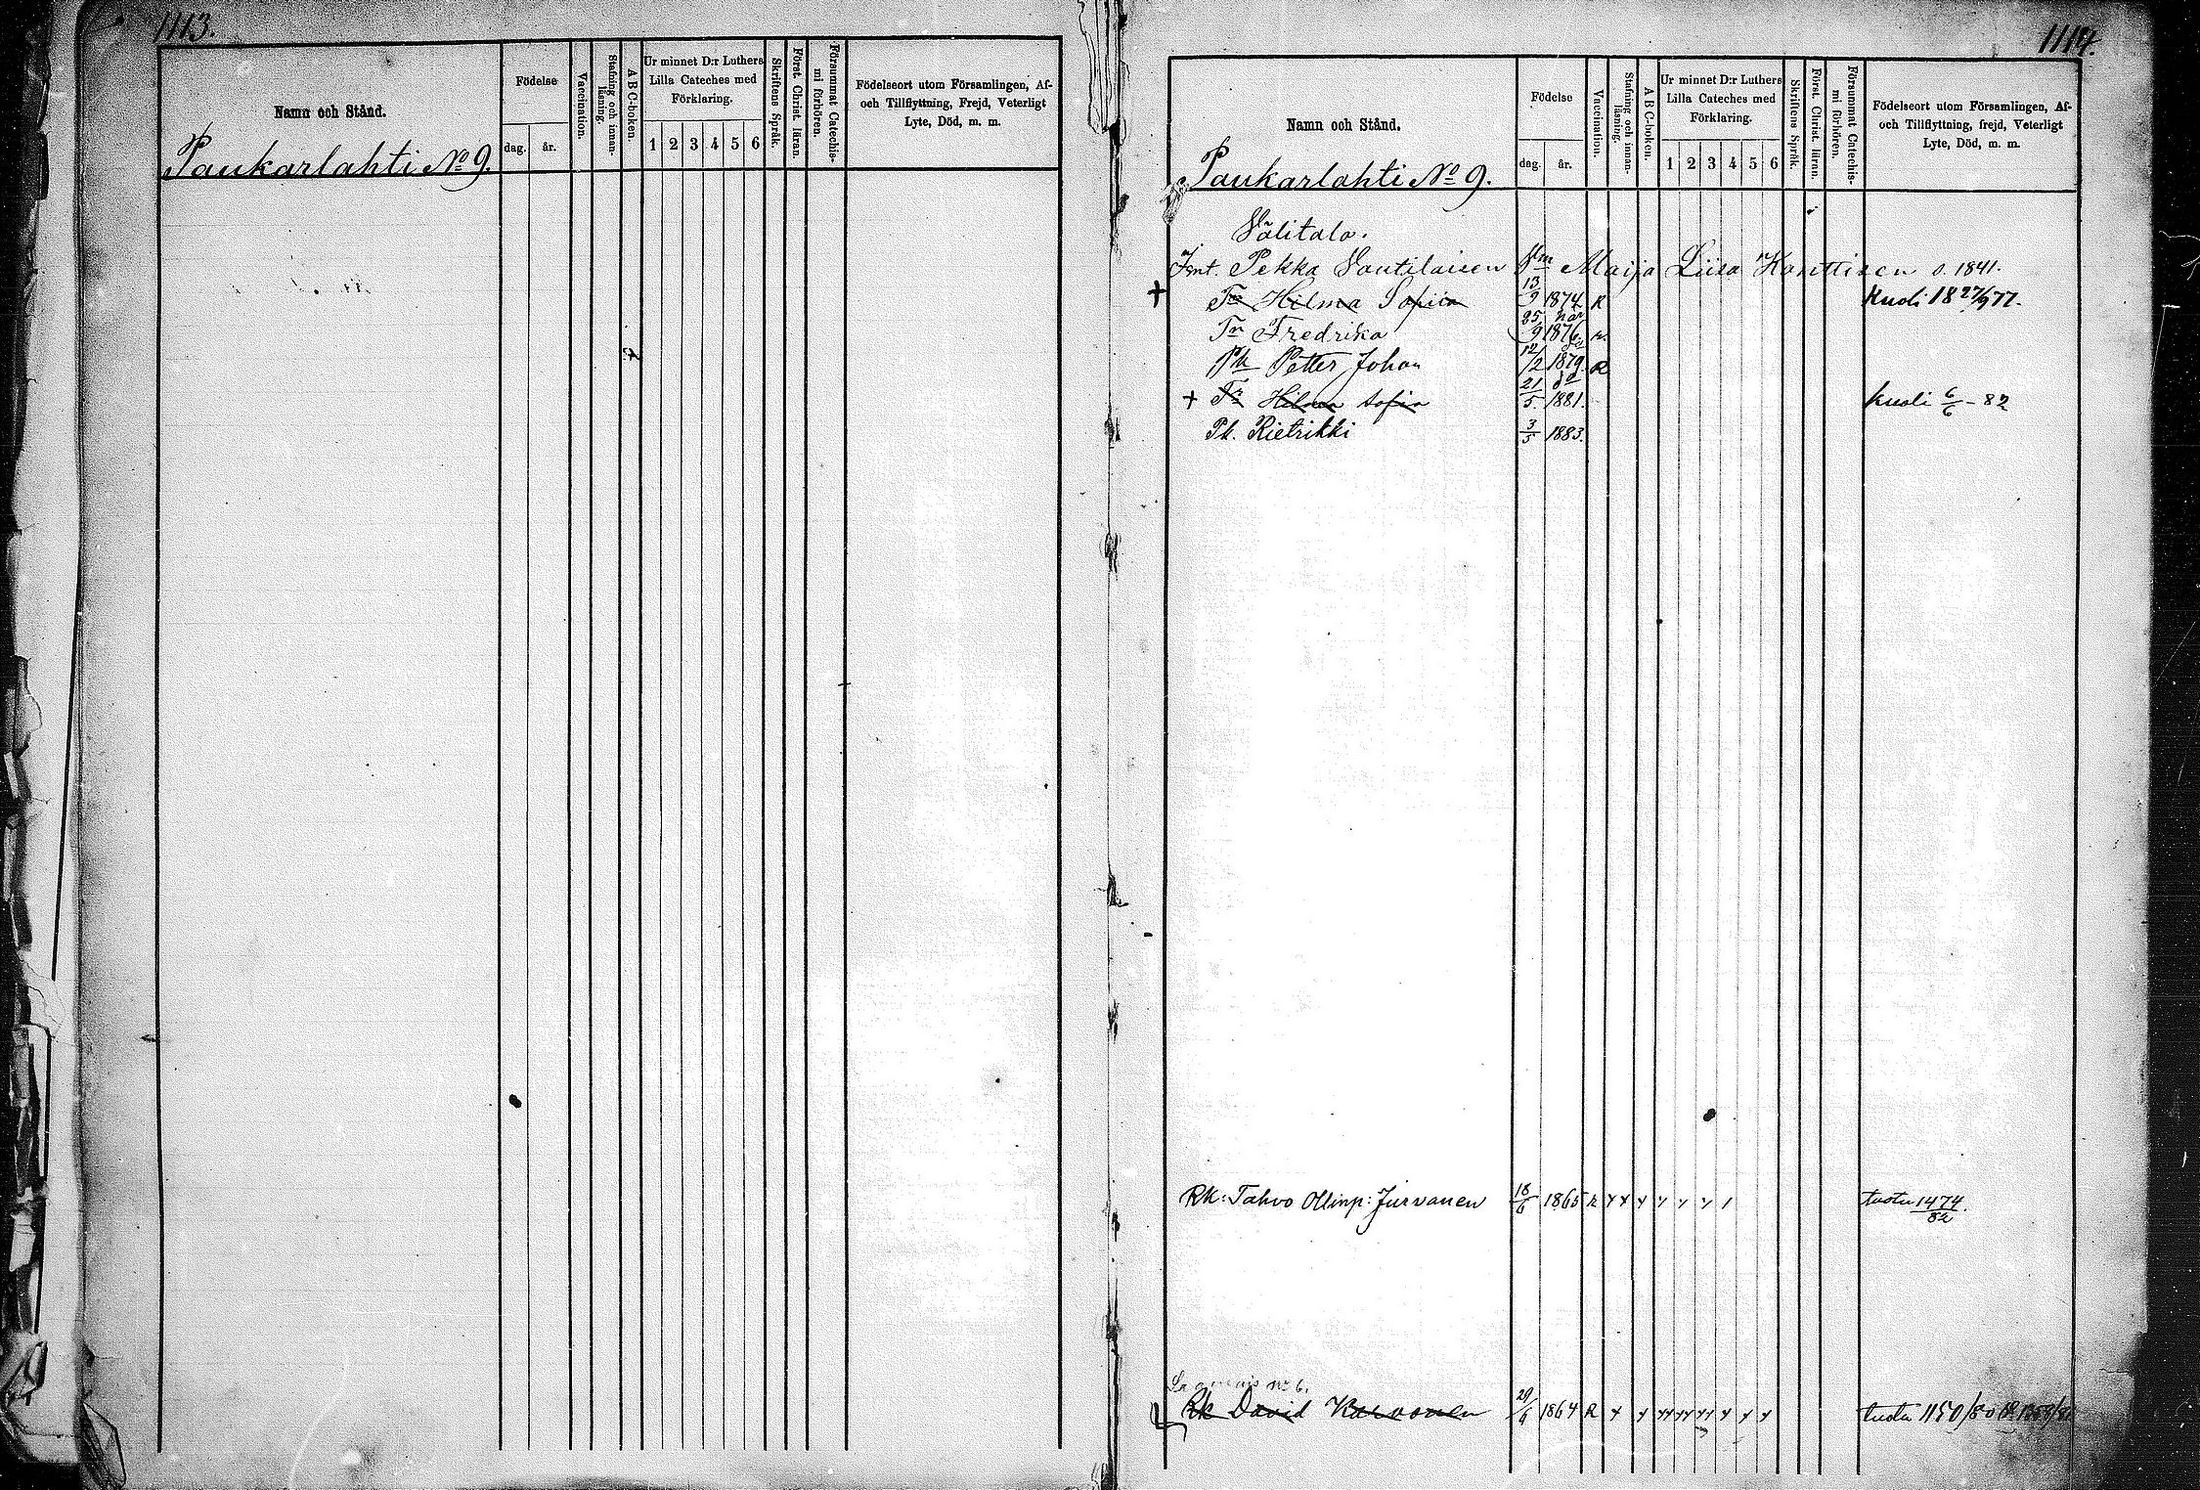 1113.
Namn och Stånd.
Födelse
dag.
år.
Vaccination.
Stafning och innanläsning.
A B C-boken.
Ur minnet D:r Luthers
Lilla Cateches med
Förklaring.
1 2 3 4 5 6
Skriftens Språk.
Först. Christ. läran.
Försummat Catechismi förhören.
Födelseort utom Församlingen, Af-
och Tillflyttning, Frejd, Veterligt
Lyte, Död, m. m.
Paukarlahti No 9.
1114.
Namn och Stånd.
Födelse
dag.
år.
Vaccination.
Stafning och innanläsning.
A B C-boken.
Ur minnet D:r Luthers
Lilla Cateches med
Förklaring.
1 2 3 4 5 6
Skriftens Språk.
Först. Christ. lärn.
Försummat Catechismi förhören.
Födelseort utom Församlingen, Af-
och Tillflyttning, frejd, Veterligt
Lyte, Död, m. m.
Paukarlahti No 9.
Välitalo.
Pekka Vautilaisen Maija Liisa Konttisen s. 1841.
+ Tr Hilma Sofiia 13/9 1874 R Kuoli 18 27/9 77.
Tr Fredrika 25/9 1876
Pk Petter Johan 12/2 1879. R
+ Tr Hilma Sofia 21/5. 1881. kuoli 6/6 - 82
Pk. Rietrikki 3/5 1883.
Rk: Tahvo Ollinp: Jurvanen 18/6 1865 R tuotu 1474/82.
No 6.
Rk David Karvonen 29/6 1864 R tuotu 1150/80